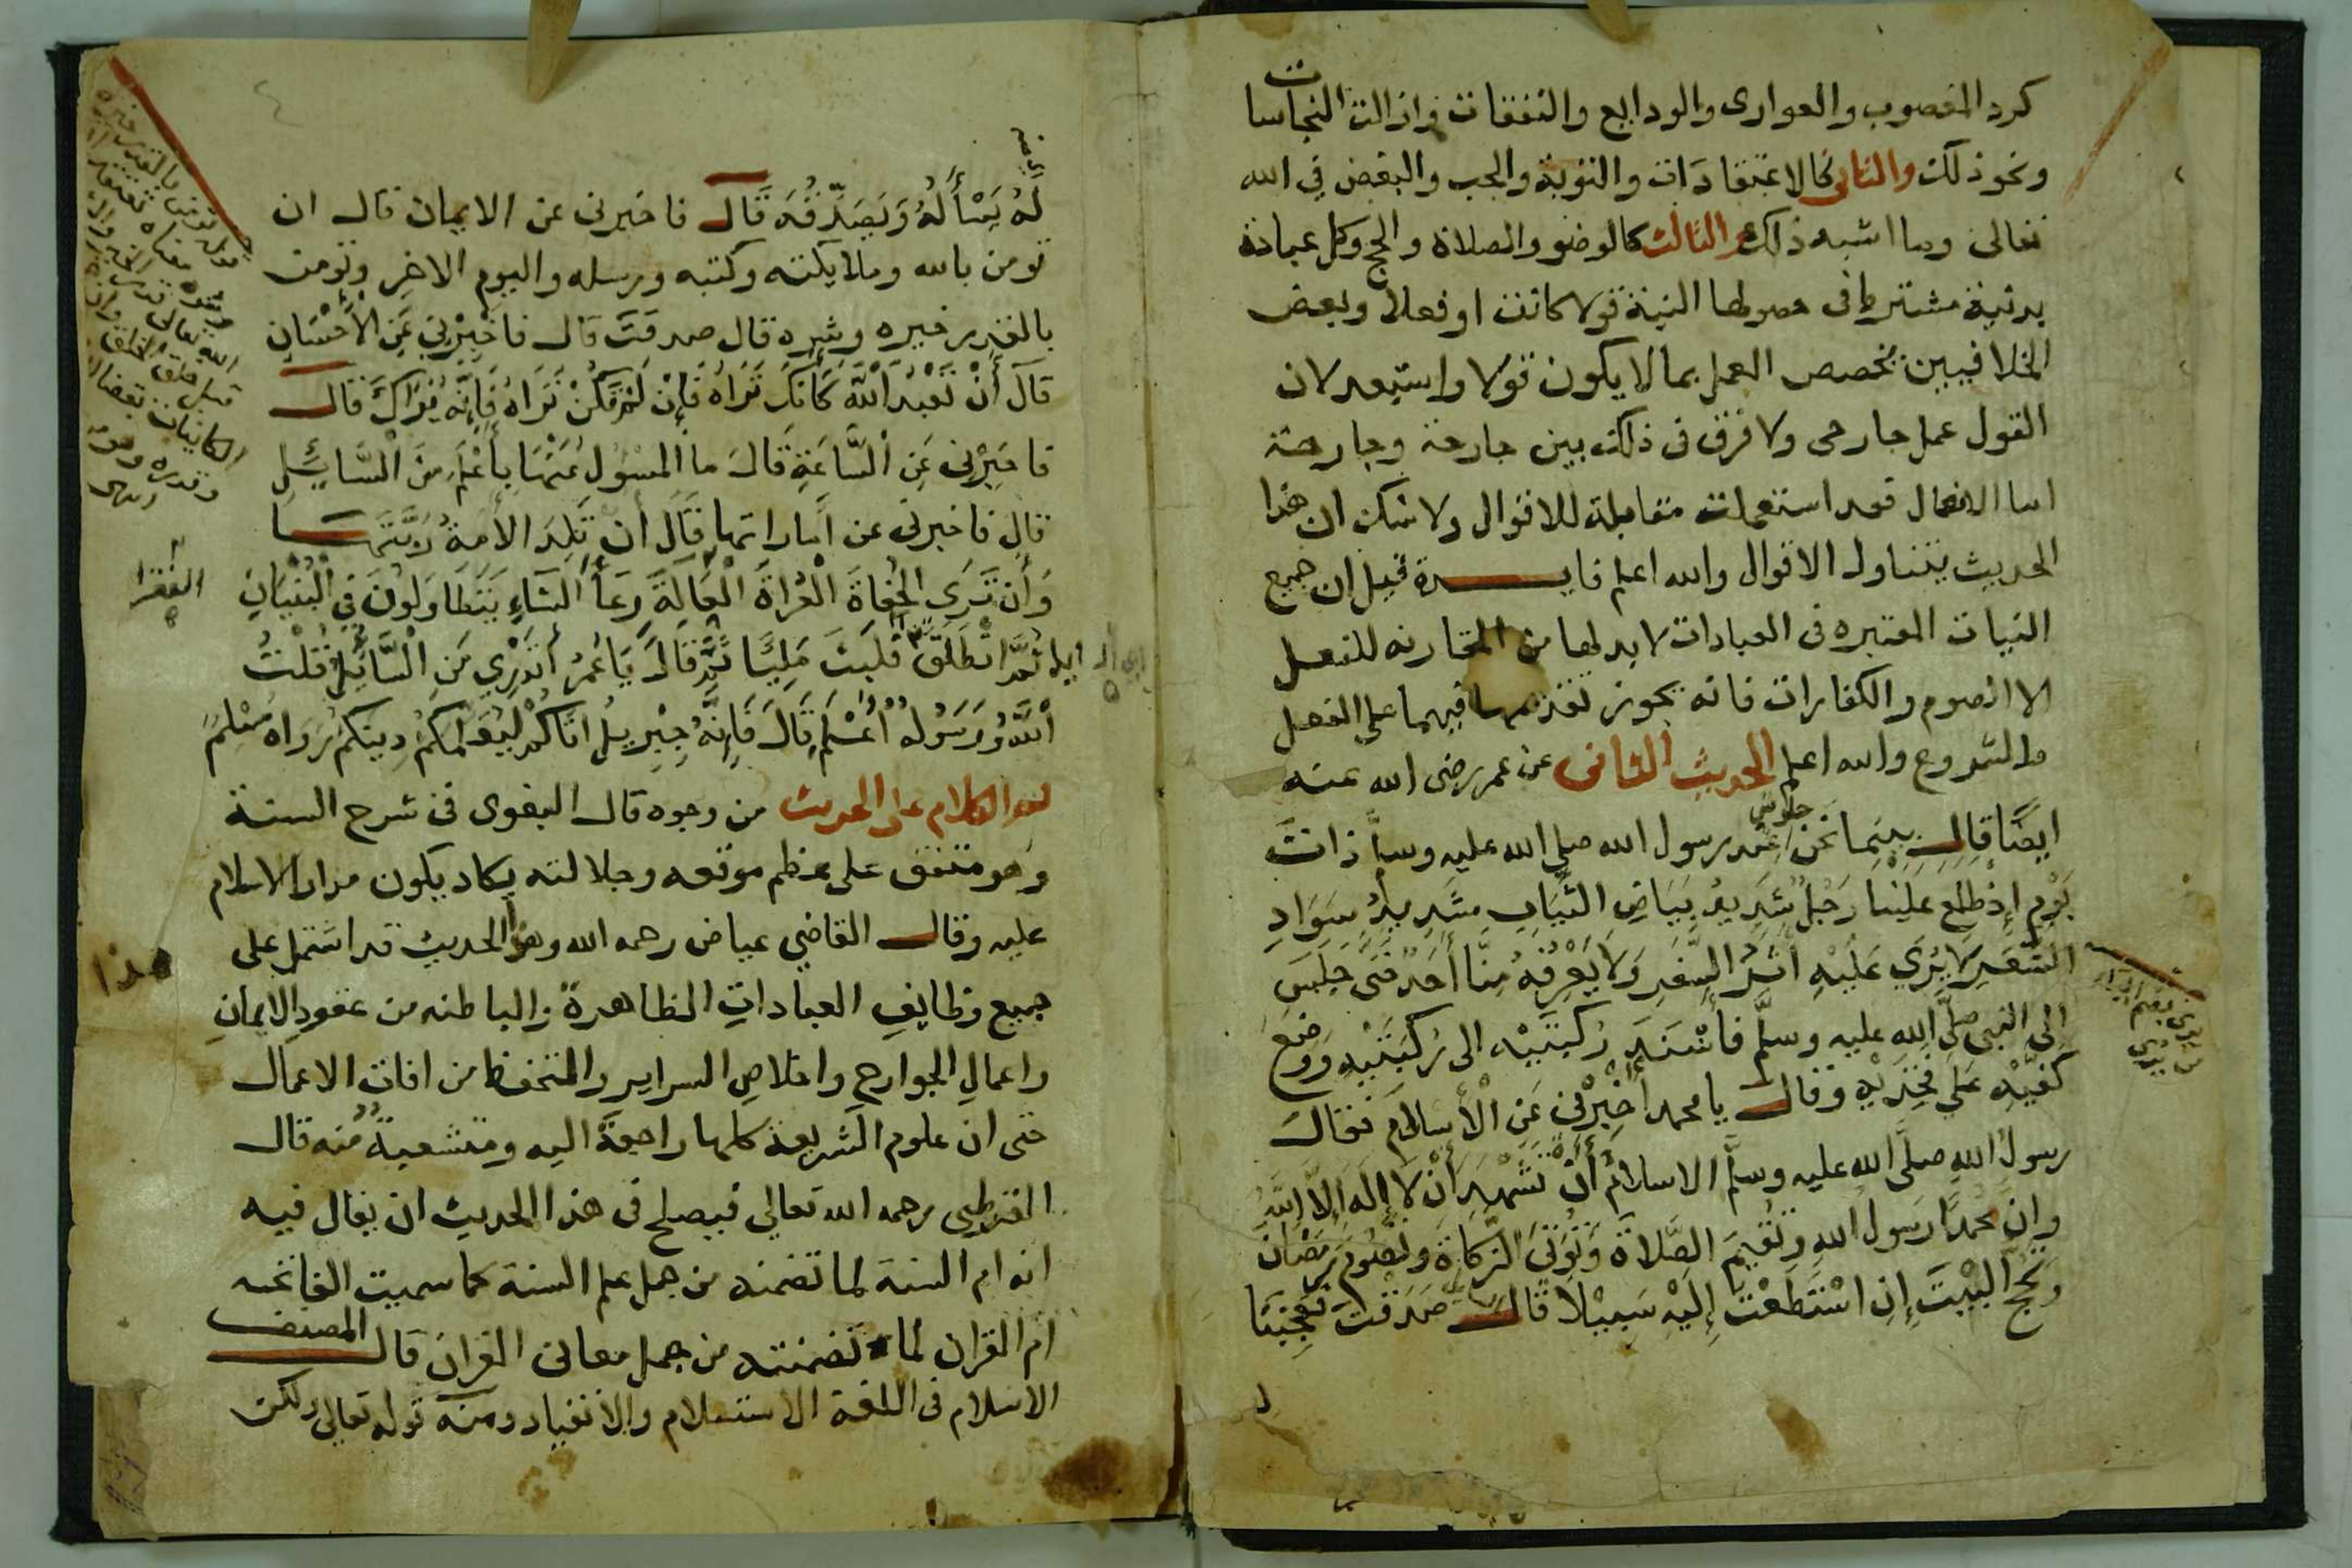 كرد المغصوب والعوارى والودايع والنفقات وازالت النجاسات
ونحو ذلك والثانى كالاعتقادات والتوبة والحب والبغض في الله
تعالى وما اشبه ذلك والثالث كالوضو والصلاة والحج وكل عبادة
بدنية مشترط فى حصولها النية قولا كانت او فعلا وبعض
الخلافيين يخصص العمل بما لا يكون قولا واستبعد لان
القول عمل جارحى ولا فرق فى ذلك بين جارحة وجارحة
اما الافعال فقد استعملت مقابلة للاقوال ولا شك ان هذا
الحديث يتناول الاقوال والله اعلم فايدة قيل ان جميع
النيات المعتبره فى العبادات لا بد لها من المقارنه للفعل
الا الصوم والكفارات فانه يجوز تقديمها فيهما على الفعل
والشروع والله اعلم الحديث الثانى عن عمر رضى الله عنه
ايضًا قال بينما نحن جلوس عند رسول الله صلى الله عليه وسلم ذات
يَوْمٍ إذ طَلَعَ عَلَيْنَا رَجُلٌ شَدِيدُ بَيَاضِ الثِّيَابِ شَدِيدُ سَوَادِ
الشَّعَرِ لَا يُرَى عَلَيْهِ أَثَرُ السَّفَرِ وَلَا يَعْرِفُهُ مِنَّا أَحَدٌ حَتَّى جَلَسَ
إلى النبى صلَّى الله عليه وسلَّم فأسْنَدَ رُكبَتَيْه الى رُكْبَتَيْهِ وَوضعَ
كَفَّيْهِ عَلى فَخِذَيْهِ وقال يا محمد أخْبِرْنى عَنِ الْأسْلام فقالَ
رسولُ اللهِ صلَّى الله عليه وسلَّم الاسلامُ أَنْ تَشْهَدَ أَنْ لَا إلهَ إلَّا اللهُ
وان محمدًا رَسول اللهِ وَتُقِيمَ الصَّلاةَ وَتُؤتىَ الزَّكاةَ وتصُومَ رَمَضَانَ
وَتَحُجَّ الْبَيْتَ إنِ اسْتَطَعْتَ إِلَيْهِ سَبِيْلًا قَالَ صَدَقْتَ فَعَجِبْنَا
لَهُ يَسْأَلُهُ وَيُصَدِّقُهُ قَالَ فاخبرنى عن الايمان قال ان
تومن بالله وملايكته وكتبه ورسله واليوم الاخِرِ وتومن
بالقدر خيره وشره قال صدقتَ قال فاخْبِرْنِى عَنِ الْأحْسَانِ
قَالَ أَنْ تَعْبُدَ اللهَ كَأَنَّكَ تَرَاهُ فَإِنْ لَمْ تَكُنْ تَرَاهُ فَإِنَّه يَرَاكَ قَالَ
فاخبِرْنِى عَنِ السَّاعَةِ قَالَ ما المسْؤول عَنْهَا بِأَعْلَمَ مِنَ السَّائِلِ
قال فاخبرنى عن أماراتها قَالَ أن تَلِدَ الأمَةُ رَبَّتَهَا
وَأَن تَرَى الْحُفَاةَ الْعُراةَ الْعَالَةَ رِعَاْ الشَّاءِ يَتَطَاوَلُونَ فِي الْبُنْيَانِ
ثُمَّ انْطَلَقَ فَلَبِثَ مَلِيًّا ثُمَّ قَالَ يَا عُمَرُ أَتَدْرِي مَنِ السَّائِلُ قُلْتُ
اللهُ وَرَسُولُهُ أعْلَمُ قَالَ فَإنَّهُ جِبْرِيلُ اتَاكُمْ لِيُعَلِّمَكُمْ دِينَكُمْ رَوَاه مُسْلِمٌ
الكلام على الحديث من وجوه قال البغوى فى شرح السنة
وهو متفق على عظم موقعه وجلالته يكاد يكون مدار الاسلام
عليه وقال القاضي عياض رحمه الله وهذا الحديث قد اشتمل على
جميع وظايفِ العباداتِ الظاهرةِ والباطنه من عقودِ الايمانِ
واعمالِ الجوارحِ واخلاصِ السرايرِ والتحفظ من افات الاعمال
حتى ان علوم الشريعة كلها راجعةٌ اليه ومتشعبةٌ منه قال
القرطبى رحمه الله تعالى فيصلح فى هذا الحديث ان يقال فيه
انه ام السنة لما تضمنه من جمل علم السنة كما سميت الفاتحه
ام القران لما تضمنته من جمل معانى القران قال المصنف
الاسلام فى اللغة الاستسلام والانقياد ومنه قوله تعالى ولكن
الفقرا
هذا